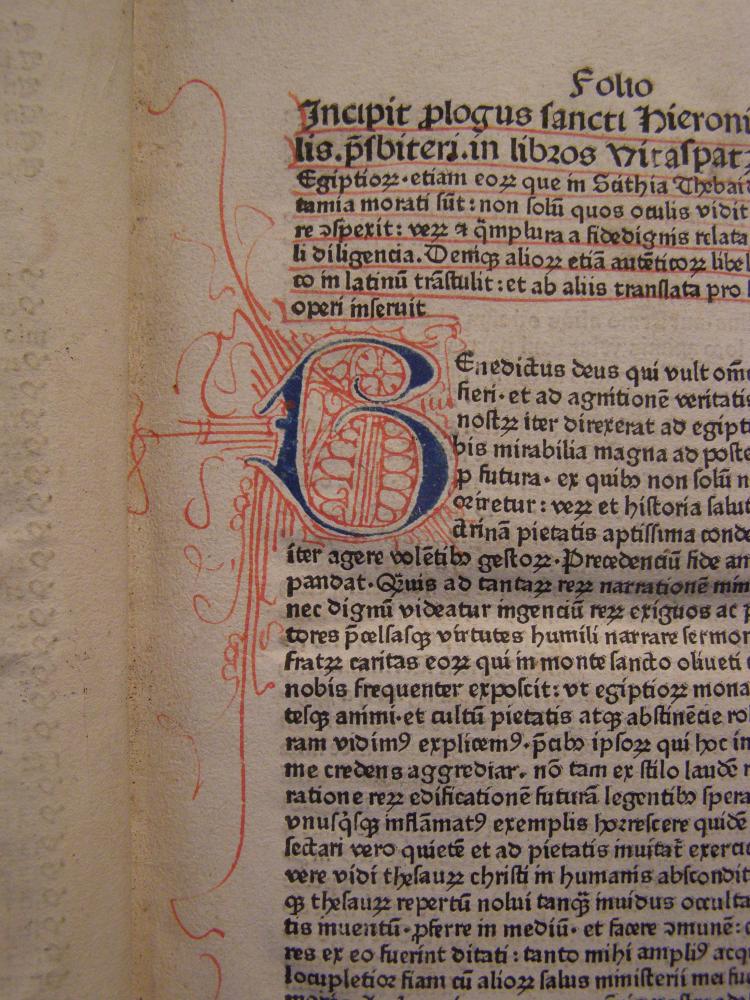 Folio
Incipit ꝓlogus sancti Hieroni
lis.p̄sbiteri.in libros vitaspatꝝ
Egiptioꝝ·etiam eoꝝ que in Scithia Thebaid
tamia morati sūt: non solū quos oculis vidit
re ↄspexit: veꝝ ⁊ q̄mplura a fidedignis relata
li diligencia. Deniqꝫ alioꝝ etiā autētícoꝝ libel
co in latinū trāstulit: et ab aliis translata pro l
operi inseruit
BEnedictus deus qui vult om̄e
fieri·et ad agnitionē veritatis
nostꝝ iter direxerat ad egipti
bis mirabilia magna ad poste
ꝑ futura· ex quibꝰ non solū n
oriretur: veꝝ et historia salut
ctrinā pietatis aptissima conde
iter agere volētibꝰ gestoꝝ·Precedenciū fide am
pandat·Quis ad tantaꝝ reꝝ narrationē min
nec dignū videatur ingenciū reꝝ exiguos ac p
tores p̄celsasqꝫ virtutes humili narrare sermon
fratꝝ caritas eoꝝ qui in monte sancto oliueti
nobis frequenter exposcit: vt egiptioꝝ mona
tesqꝫ animi·et cultū pietatis atqꝫ abstinēcie ro
ram vidimꝰ explicemꝰ·p̄cibꝰ ipsoꝝ qui hoc in
me credens aggrediar. nō tam ex stilo laudē
ratione reꝝ edificationē futurā legentibꝰ spera
vnusq̇sqꝫ inflāmatꝰ exemplis horrescere quidē
sectari vero quietē et ad pietatis inuitat̄ exerci
vere vidi thesauꝝ christi in humanis abscondit
qꝫ thesauꝝ repertū nolui tanq̄ inuidus occulta
tis inuentū·ꝓferre in mediū· et facere ↄmunē:
res ex eo fuerint ditati: tanto mihi ampliꝰ acqu
locupletior fiam cū alioꝝ salus ministerii mei fu